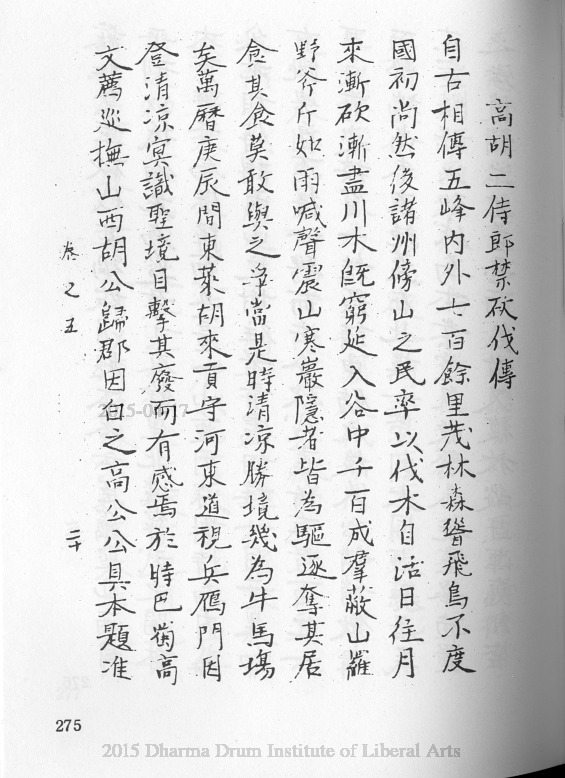 高胡二侍郎禁砍伐傳
自古相傳五峰內外七百餘里茂林森聳飛鳥不度
國初尚然後諸州傍山之民率以伐木自活日往月
來漸砍漸盡川木既窮延入谷中千百成羣蔽山羅
野斧斤如雨喊聲震山寒巖隱者皆為驅逐奪其居
食其食莫敢與之爭當是時清凉勝境幾為牛馬場
矣萬曆庚辰間東萊胡來貢守河東道視兵鴈門因
登清凉冥識聖境目擊其廢而有感焉於時巴蜀高
文薦巡撫山西胡公歸郡因白之高公公具本題准
卷之五
二十
275
2015 Dharma Drum Institute of Liberal Arts